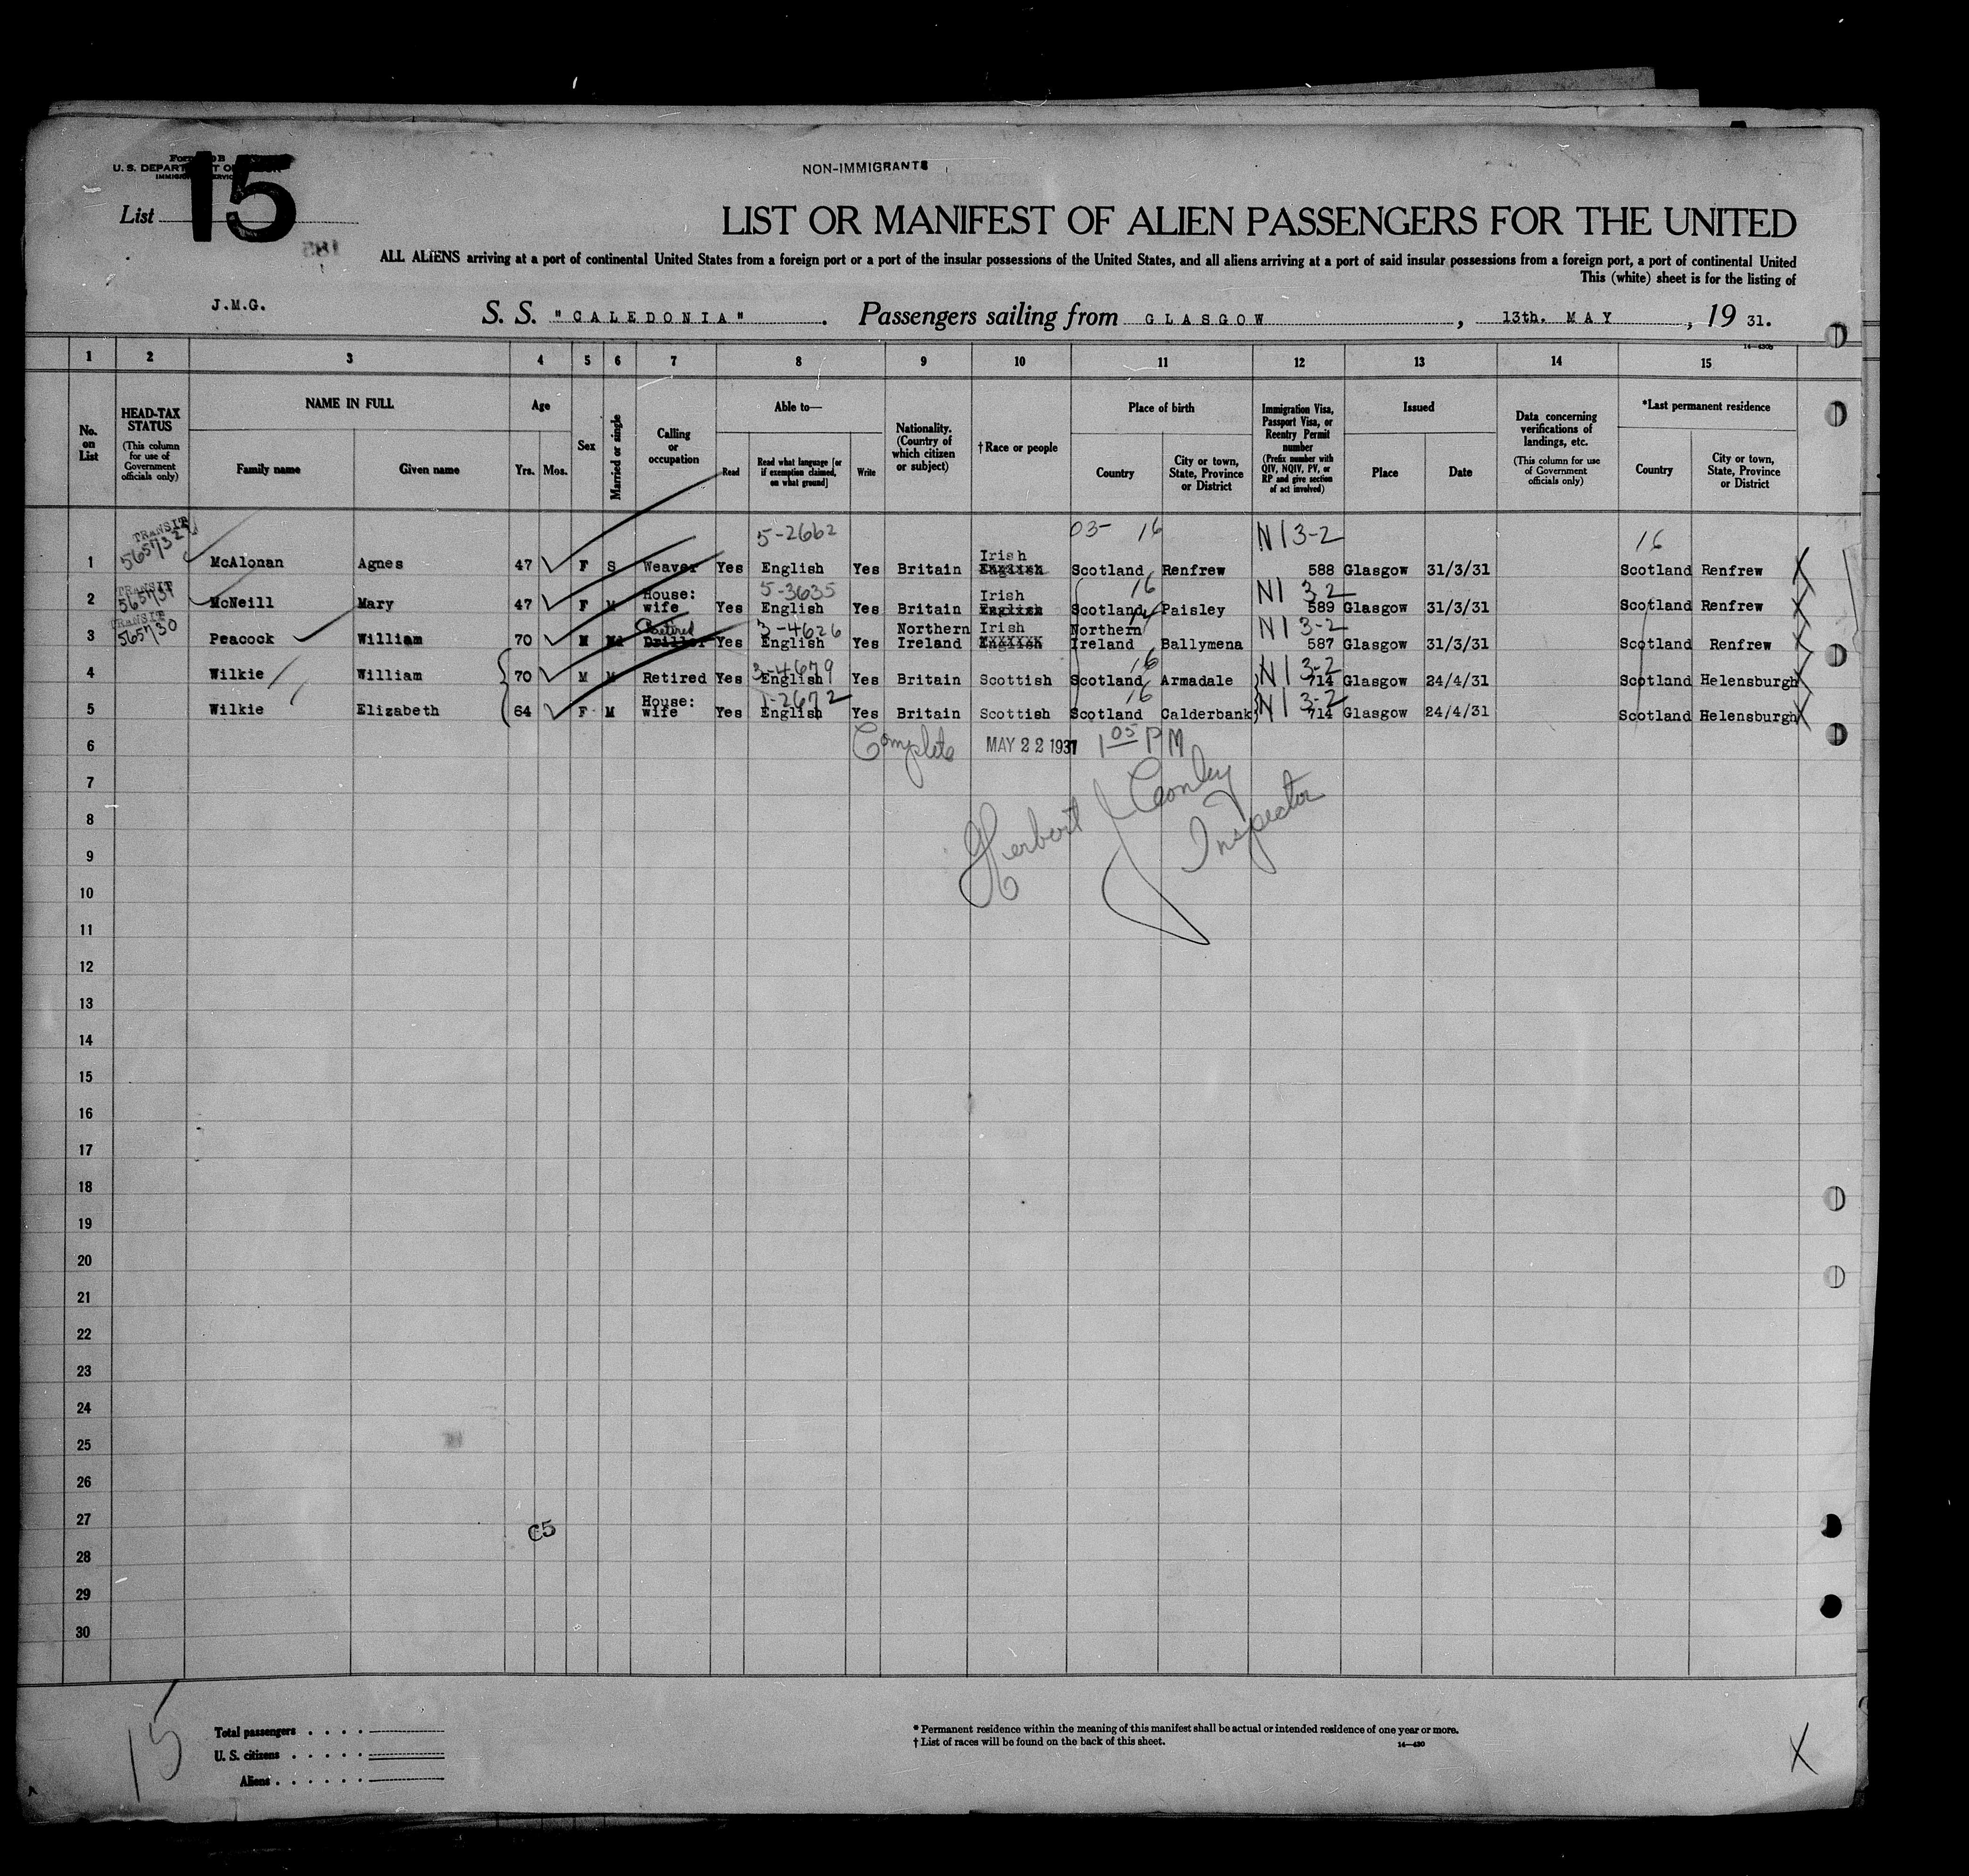 NON-IMMIGRANTS
List 15
LIST OR MANIFEST OF ALIEN PASSENGERS FOR THE UNITED
ALL ALIENS arriving at a port of continental United States from a foreign port or a port of the insular possessions of the United States, and all aliens arriving at a port of said insular possessions from a foreign port, a port of continental United
This (white) sheet is for the listing of
J.M.G. S. S. "CALEDONIA". Passengers sailing from GLASGOW, 13th. MAY, 19 31.
1 2 3 4 5 6 7 8 9 10 11 12 13 14 15
No. on List
HEAD-TAX STATUS (This column for use of Government officials only)
NAME IN FULL
Family name Given name
Age
Yrs. Mos.
Sex
Married or single
Calling or occupation
Able to—
Read Read what language [or if exemption claimed, on what ground] Write
Nationality. (Country of which citizen or subject)
†Race or people
Place of birth
Country City or town, State, Province or District
Immigration Visa, Passport Visa, or Reentry Permit number (Prefix number with QIV, NQIV, PV, or RP and give section of act involved)
Issued
Place Date
Data concerning verifications of landings, etc. (This column for use of Government officials only)
*Last permanent residence
Country City or town, State, Province or District
TRANSIT 5-2662 03- 16 N I 3-2 16
1 McAlonan Agnes 47 F S Weaver Yes English Yes Britain Irish English Scotland Renfrew 588 Glasgow 31/3/31 Scotland Renfrew X
TRANSIT 5-3635 16 N I 3-2
2 McNeill Mary 47 F M House: wife Yes English Yes Britain Irish English Scotland Paisley 589 Glasgow 31/3/31 Scotland Renfrew X
TRANSIT 565730 3-4626 N I 3-2
3 Peacock William 70 M Retired Driller Yes English Yes Northern Ireland Irish Northern Ireland Ballymena 587 Glasgow 31/3/31 Scotland Renfrew X
3-4679 16 N I 3-2
4 Wilkie William 70 M M Retired Yes English Yes Britain Scottish Scotland Armadale 714 Glasgow 24/4/31 Scotland Helensburgh X
1-2672 16 N I 3-2
5 Wilkie Elizabeth 64 F M House: wife Yes English Yes Britain Scottish Scotland Calderbank 714 Glasgow 24/4/31 Scotland Helensburgh X
6 Complete MAY 22 1931 1 05 PM
7
8 Herbert J Conley
Inspector
9
10
11
12
13
14
15
16
17
18
19
20
21
22
23
24
25
26
27 C5
28
29
30
15
Total passengers
U. S. citizens
Aliens
* Permanent residence within the meaning of this manifest shall be actual or intended residence of one year or more.
† List of races will be found on the back of this sheet. 14—430
X